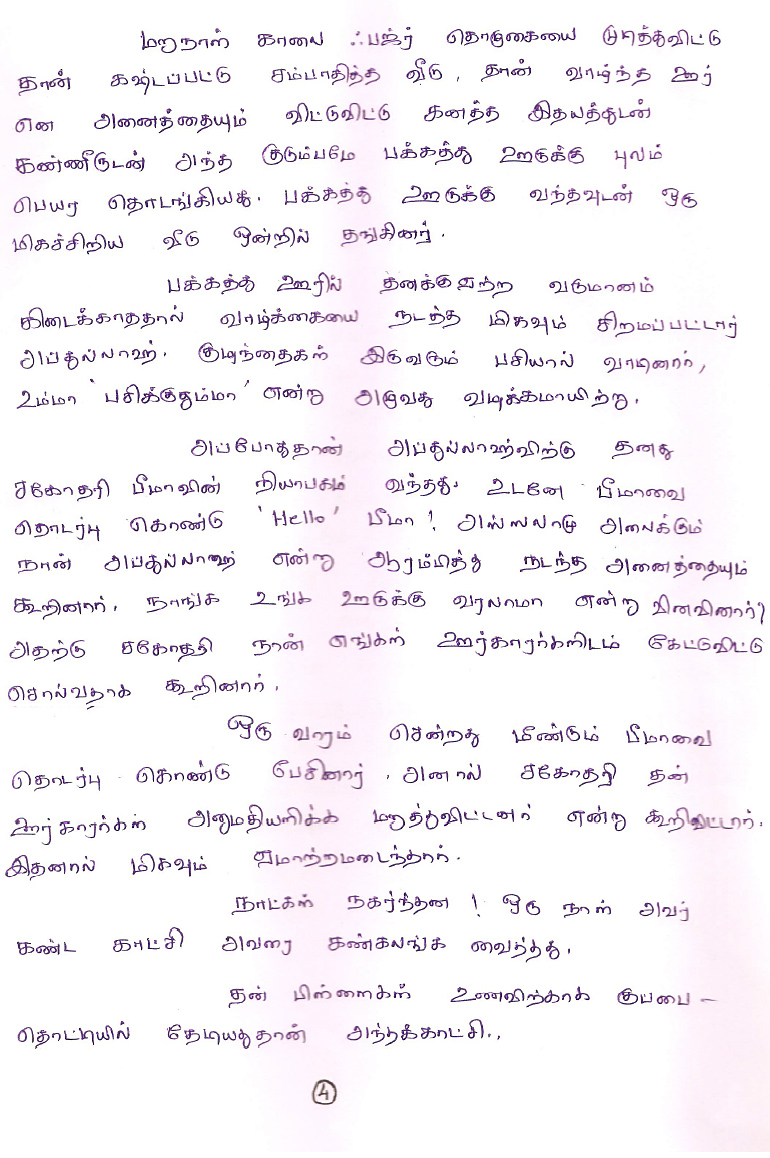 மறுநாள் காலை ஃபஜ்ர் தொழுகையை முடித்துவிட்டு
தான் கஷ்டப்பட்டு சம்பாதித்த வீடு, தான் வாழ்ந்த ஊர்
என அனைத்தையும் விட்டுவிட்டு கனத்த இதயத்துடன்
கண்ணீருடன் அந்த குடும்பமே பக்கத்து ஊருக்கு புலம்
பெயர தொடங்கியது. பக்கத்து ஊருக்கு வந்தவுடன் ஒரு
மிகச்சிறிய வீடு ஒன்றில் தங்கினர்.
பக்கத்து ஊரில் தனக்கு ஏற்ற வருமானம்
கிடைக்காததால் வாழ்க்கையை நடத்த மிகவும் சிறமப்பட்டார்
அப்துல்லாஹ். குழந்தைகள் இருவரும் பசியால் வாடினார்,
உம்மா 'பசிக்குதும்மா' என்று அழுவது வழக்கமாயிற்று.
அப்போதுதான் அப்துல்லாஹ்விற்கு தனது
சகோதரி பீமாவின் நியாபகம் வந்தது. உடனே பீமாவை
தொடர்பு கொண்டு 'Hello' பீமா! அஸ்ஸலாமு அலைக்கும்
நான் அப்துல்லாஹ் என்று ஆரம்பித்து நடந்த அனைத்தையும்
கூறினார். நாங்க உங்க ஊருக்கு வரலாமா என்று வினவினார்?
அதற்கு சகோதரி நான் எங்கள் ஊர்காரர்களிடம் கேட்டுவிட்டு
சொல்வதாக கூறினார்.
ஒரு வாரம் சென்றது மீண்டும் பீமாவை
தொடர்பு கொண்டு பேசினார். அனால் சகோதரி தன்
ஊர்காரர்கள் அனுமதியளிக்க மறுத்துவிட்டனர் என்று கூறிவிட்டார்.
இதனால் மிகவும் ஏமாற்றமடைந்தார்.
நாட்கள் நகர்ந்தன! ஒரு நாள் அவர்
கண்ட காட்சி அவரை கண்கலங்க வைத்தது.
தன் பிள்ளைகள் உணவிற்காக குப்பை-
தொட்டியில் தேடியதுதான் அந்தக்காட்சி..
4